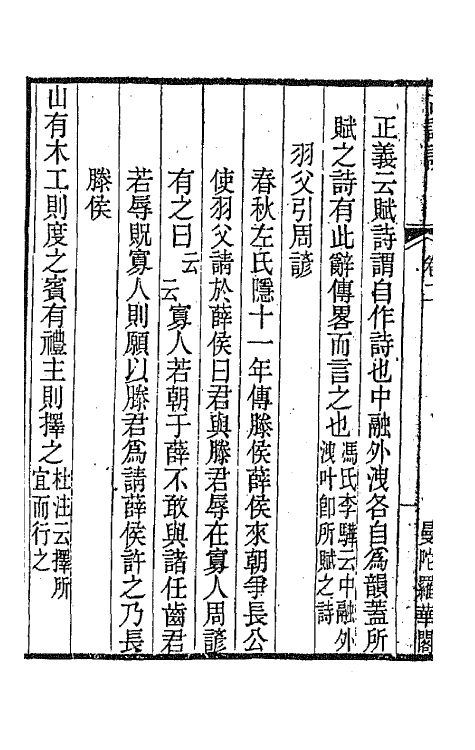 卷二
曼陀羅華閣
正義云賦詩謂自作詩也中融外洩各自爲韻蓋所
賦之詩有此辭傳畧而言之也馮氏李驊云中融外洩叶卽所賦之詩
羽父引周諺
春秋左氏隱十一年傳滕侯薛侯來朝爭長公
使羽父請於薛侯曰君與滕君辱在寡人周諺
有之曰云云寡人若朝于薛不敢與諸任齒君
若辱貺寡人則願以滕君爲請薛侯許之乃長
滕侯
山有木工則度之賓有禮主則擇之杜注云擇所宜而行之